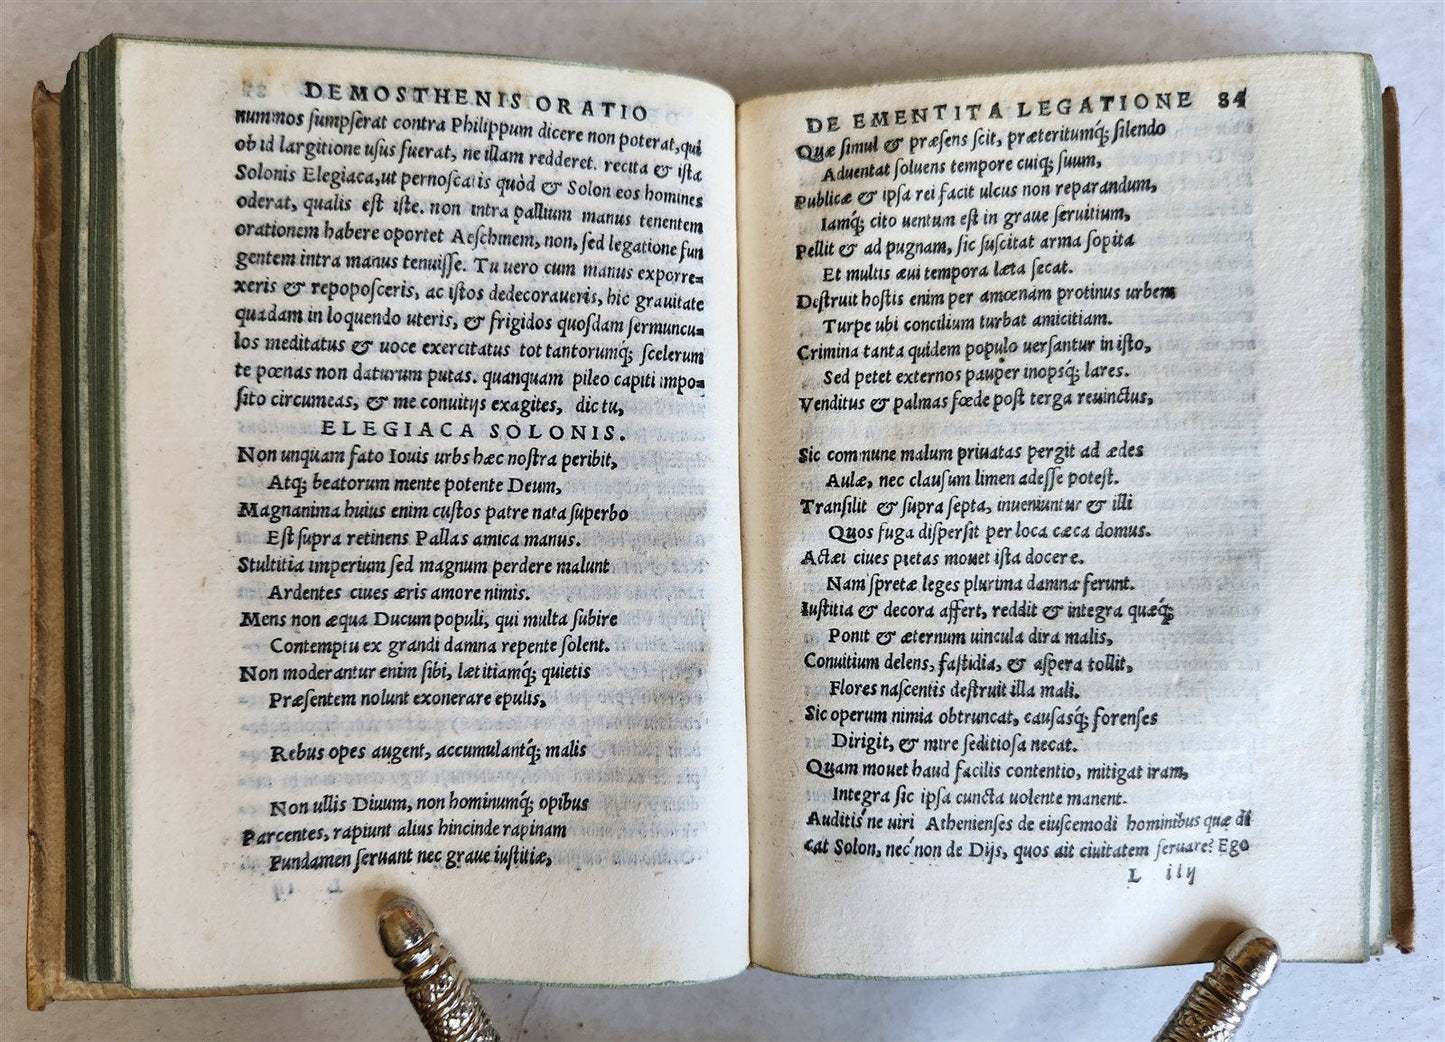 DEMOSTHENIS ORATIO
nummos sumpserat contra Philippum dicere non poterat, qui
ob id largitione usus fuerat, ne illam redderet. recita & ista
Solonis Elegiaca, ut pernoscatis quòd & Solon eos homines
oderat, qualis est iste. non intra pallium manus tenentem
orationem habere oportet Aeschinem, non, sed legatione fun
gentem intra manus tenuisse. Tu uero cum manus exporre=
xeris & repoposceris, ac istos dedecoraueris, hic grauitate
quadam in loquendo uteris, & frigidos quosdam sermuncu=
los meditatus & uoce exercitatus tot tantorumq́; scelerum
te pœnas non daturum putas. quanquam pileo capiti impo=
sito circumeas, & me conuitijs exagites, dic tu,
ELEGIACA SOLONIS.
Non unquam fato Iouis urbs hæc nostra peribit,
Atq; beatorum mente potente Deum,
Magnanima huius enim custos patre nata superbo
Est supra retinens Pallas amica manus.
Stultitia imperium sed magnum perdere malunt
Ardentes ciues æris amore nimis.
Mens non æqua Ducum populi, qui multa subire
Contemptu ex grandi damna repente solent.
Non moderantur enim sibi, lætitiamq́; quietis
Præsentem nolunt exonerare epulis,
Rebus opes augent, accumulantq́; malis
Non ullis Diuum, non hominumq́; opibus
Parcentes, rapiunt alius hincinde rapinam
Fundamen seruant nec graue iustitiæ,
DE EMENTITA LEGATIONE 84
Quæ simul & præsens scit, præteritumq́; silendo
Aduentat soluens tempore cuiq; suum,
Publicæ & ipsa rei facit ulcus non reparandum,
Iamq́; cito uentum est in graue seruitium,
Pellit & ad pugnam, sic suscitat arma sopita
Et multis æui tempora læta secat.
Destruit hostis enim per amœnam protinus urbem
Turpe ubi concilium turbat amicitiam.
Crimina tanta quidem populo uersantur in isto,
Sed petet externos pauper inopsq́; lares.
Venditus & palmas fœde post terga reuinctus,
Sic commune malum priuatas pergit ad ædes
Aulæ, nec clausum limen adesse potest.
Transilit & supra septa, inueniuntur & illi
Quos fuga dispersit per loca cæca domus.
Actæi ciues pietas mouet ista docere.
Nam spretæ leges plurima damna ferunt.
Iustitia & decora affert, reddit & integra quæq́;
Ponit & æternum uincula dira malis,
Conuitium delens, fastidia, & aspera tollit,
Flores nascentis destruit illa mali.
Sic operum nimia obtruncat, causasq́; forenses
Dirigit, & mire seditiosa necat.
Quam mouet haud facilis contentio, mitigat iram,
Integra sic ipsa cuncta uolente manent.
Auditis ne uiri Athenienses de eiuscemodi hominibus quæ di
cat Solon, nec non de Dijs, quos ait ciuitatem seruare? Ego
L iiij